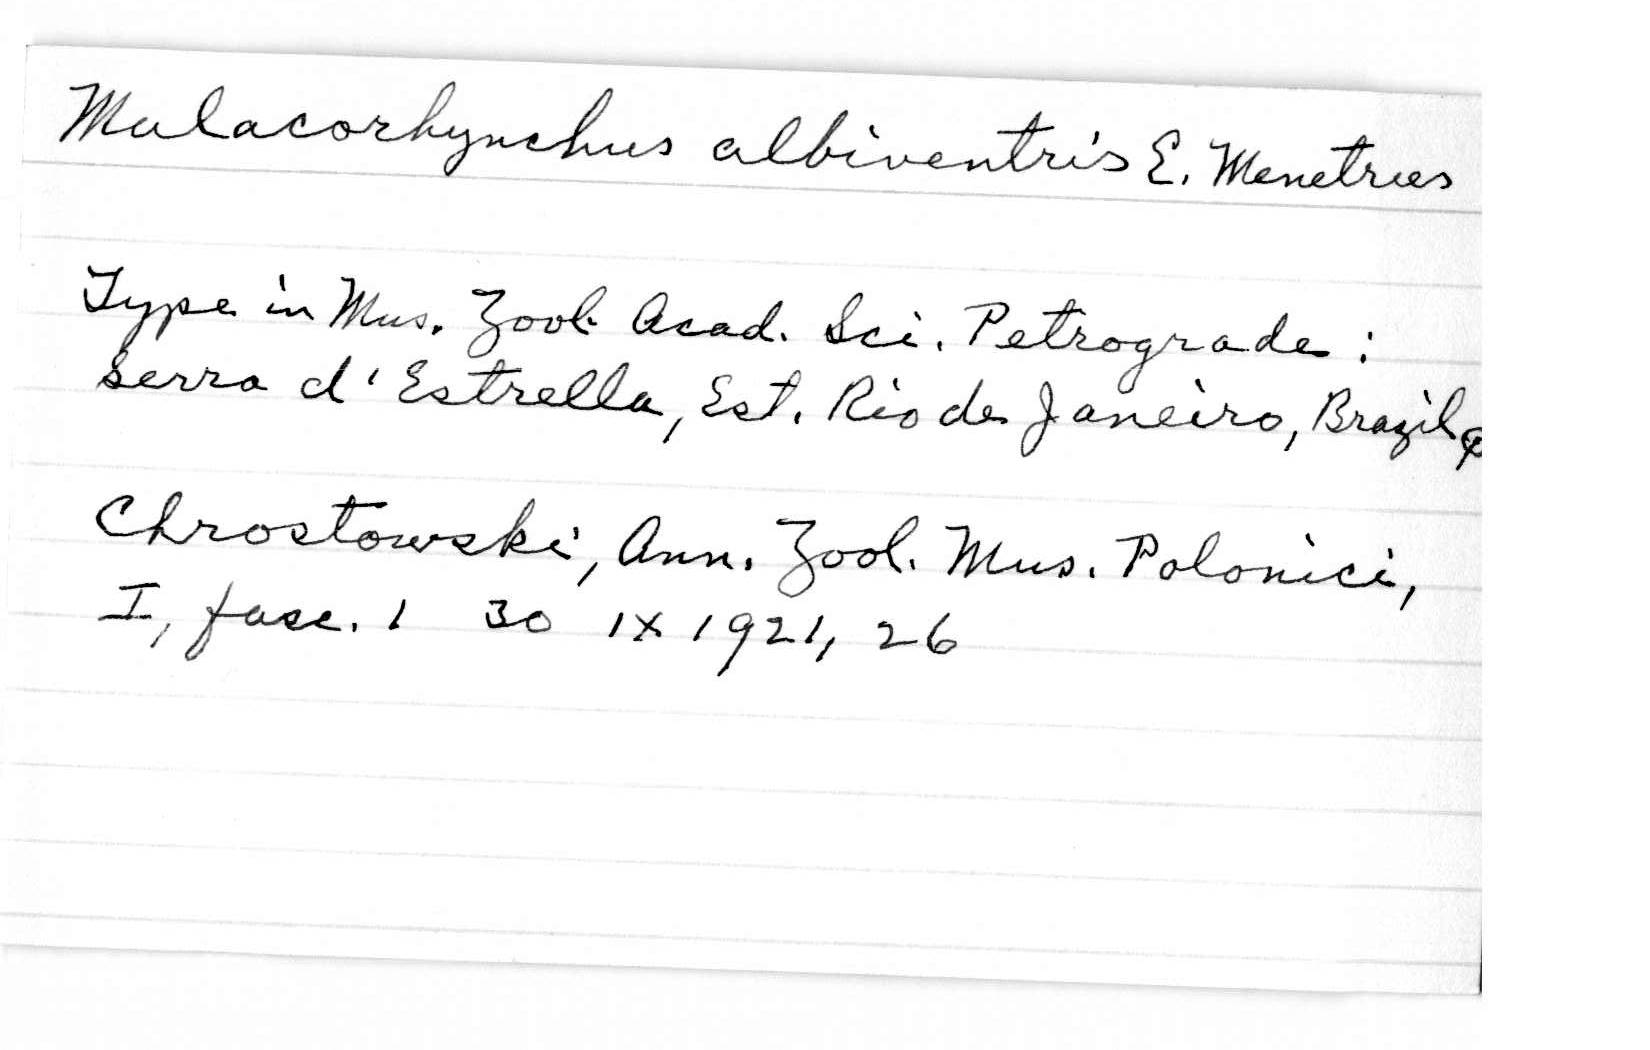 Malacorhynchus albiventris E. Menetries
Type in Mus. Zool. Acad. Sci. Petrograde :
Serra d'Estrella, Est. Rio de Janeiro, Brazil
Chrostowski, Ann. Zool. Mus. Polonici,
I, fasc. 1 30 IX 1921, 26